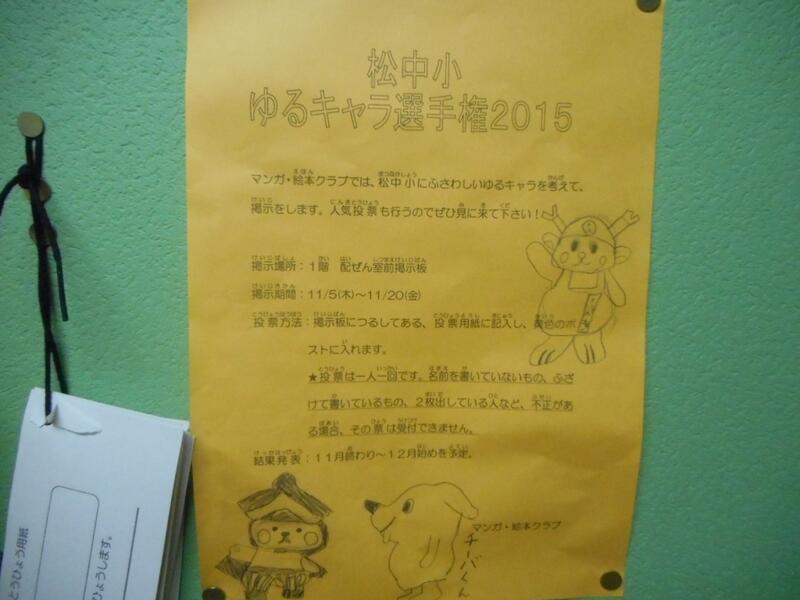 松中小
ゆるキャラ選手権2015
マンガ・絵本クラブでは、松中小にふさわしいゆるキャラを考えて、
掲示をします。人気投票も行うのでぜひ見に来て下さい!
掲示場所:1階 配ぜん室前掲示板
掲示期間:11/5(木)~11/20(金)
投票方法:掲示板につるしてある、投票用紙に記入し、黄色のポ
ストに入れます。
★投票は一人一回です。名前を書いていないもの、ふざ
けて書いているもの、2枚出している人など、不正があ
る場合、その票は受付できません。
結果発表:11月終わり~12月始めを予定。
マンガ・絵本クラブ
チーバくん
とうひょう用紙
ひょうします。